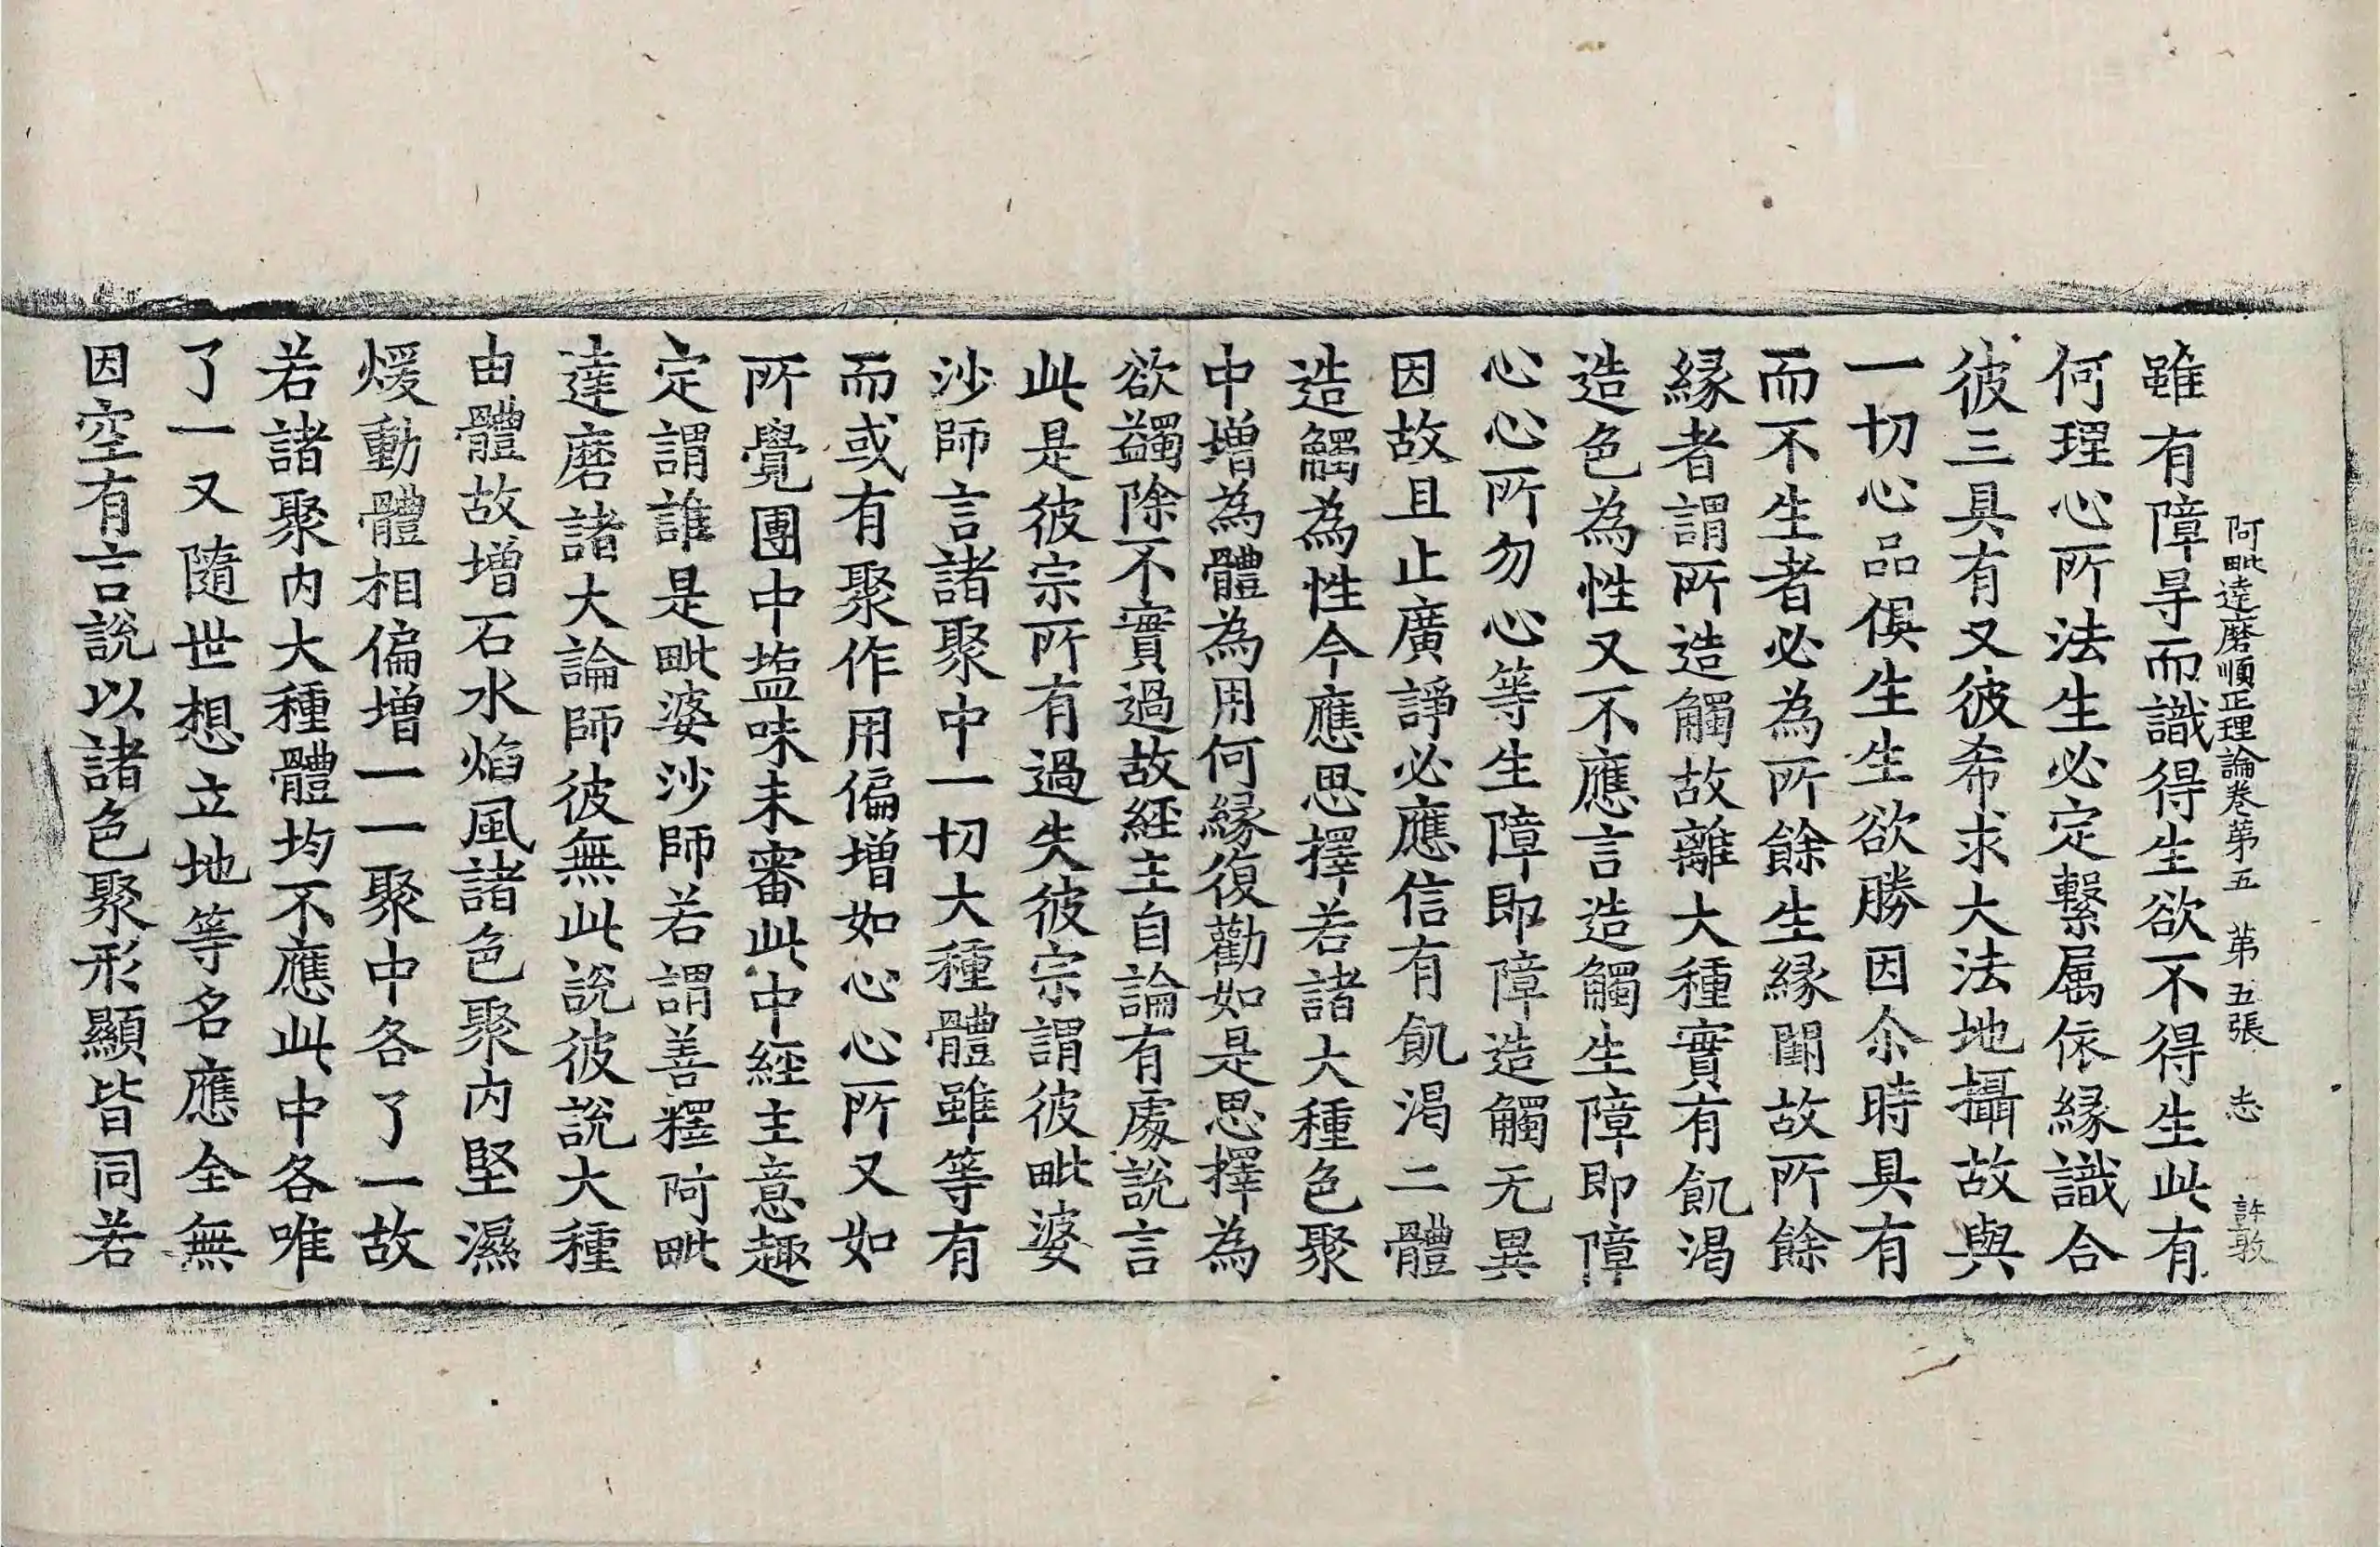 阿毗達磨順正理論卷第五 第五張 志 許敦
雖有障㝵而識得生欲不得生此有
何理心所法生必定繫屬依緣識合
彼三具有又彼希求大法地攝故與
一切心品俱生生欲勝因尒時具有
而不生者必為所餘生緣闕故所餘
緣者謂所造觸故離大種實有飢渴
造色為性又不應言造觸生障即障
心心所勿心等生障即障造觸无異
因故且止廣諍必應信有飢渴二體
造觸為性今應思擇若諸大種色聚
中增為體為用何緣復勸如是思擇為
欲蠲除不實過故經主自論有處說言
此是彼宗所有過失彼宗謂彼毗婆
沙師言諸聚中一切大種體雖等有
而或有聚作用偏增如心心所又如
所覺團中塩味未審此中經主意趣
定謂誰是毗婆沙師若謂善釋阿毗
達磨諸大論師彼無此說彼說大種
由體故增石水焰風諸色聚內堅濕
煖動體相偏增一一聚中各了一故
若諸聚內大種體均不應此中各唯
了一又隨世想立地等名應全無
因空有言說以諸色聚形顯皆同若